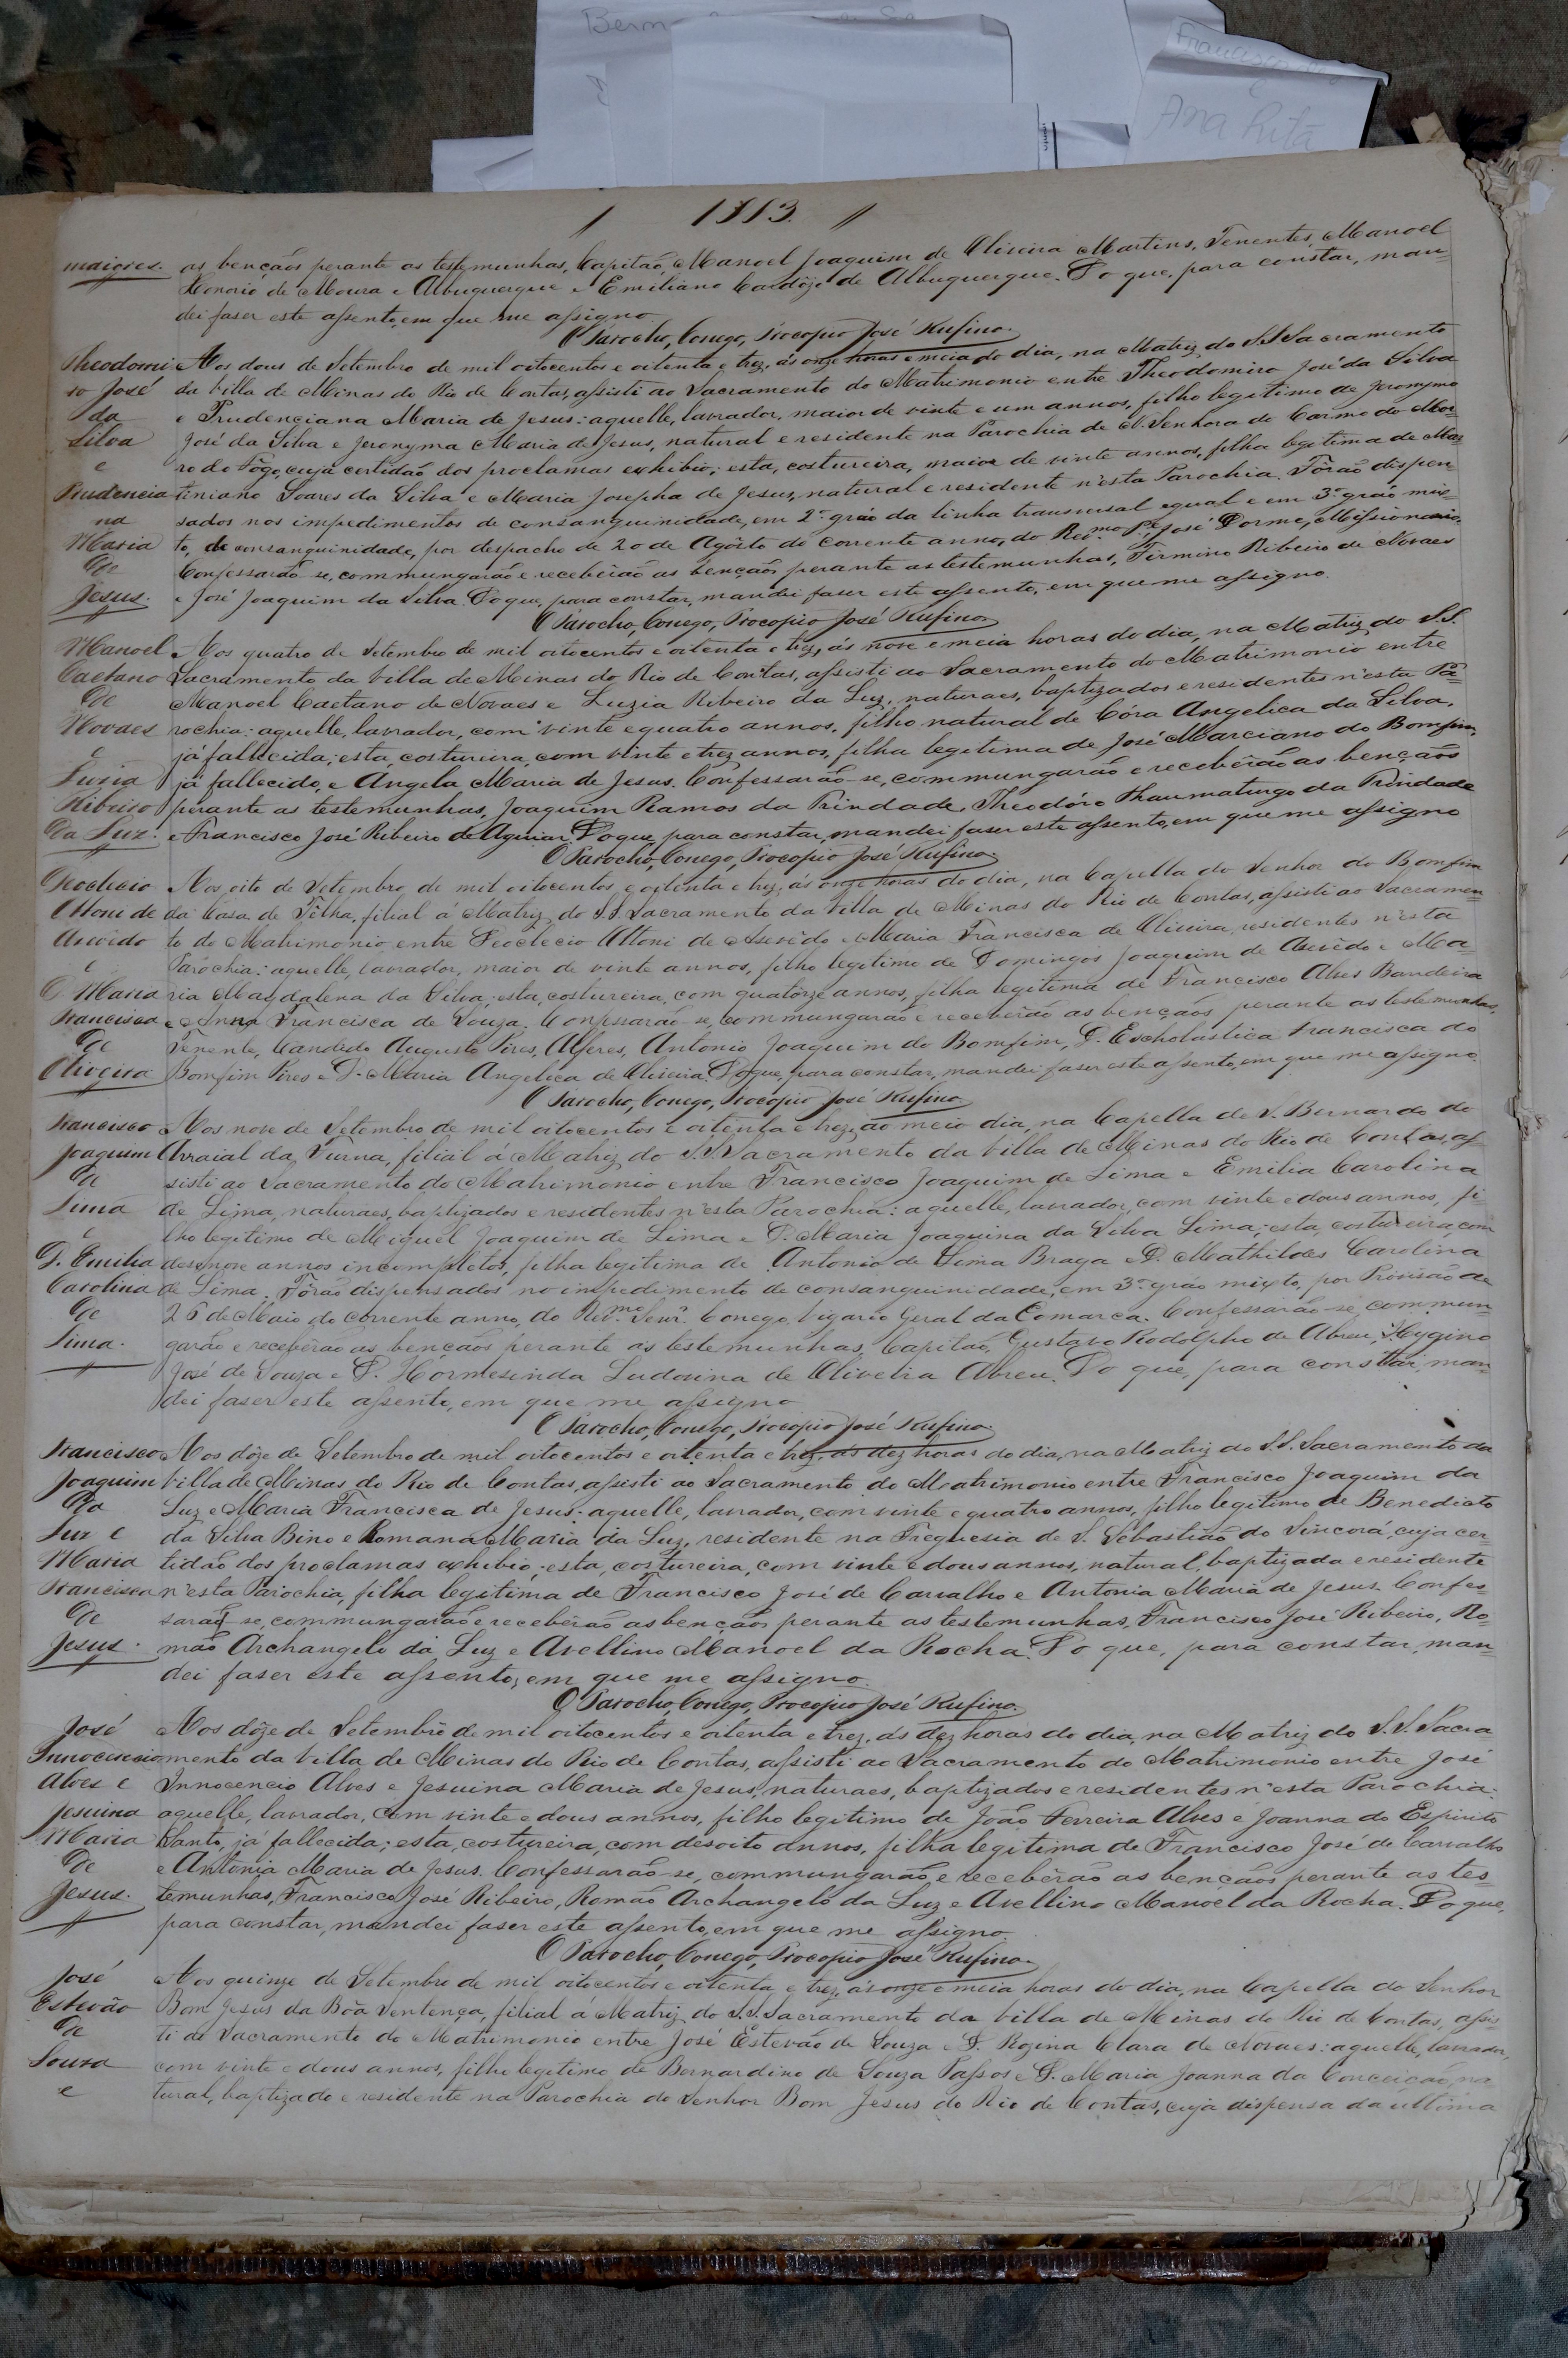 Bern
Francisco
Ana Rita
1883.
maiores. as bençaõs perante as testemunhas, Capitaõ, Manoel Joaquim de Oliveira Martins, Tenentes, Manoel
Honorio de Moura e Albuquerque e Emiliano Cardôzo de Albuquerque. Do que, para constar, man=
dei faser este assento, em que me assigno
O Parocho, Conego, Procopio José Rufino.
Theodomi Aos dous de Setembro de mil oitocentos e oitenta e trez, ás onze horas e meia do dia, na Matriz do S.S. Sacramento
ro José da Villa de Minas do Rio de Contas, assisti ao Sacramento do Matrimonio entre Theodomiro José da Silva
da e Prudenciana Maria de Jesus: aquelle, lavrador, maior de vinte e um annos, filho legitimo de Jeronymo
Silva José da Silva e Jeronyma Maria de Jesus, natural e residente na Parochia de N. Senhora do Carmo do Mor=
e ro do Fôgo, cuja certidaõ dos proclamas exhibio; esta, costureira, maior de vinte annos, filha legitima de Mar
Prudencia tiniano Soares da Silva e Maria Josepha de Jesus, natural e residente n'esta Parochia. Fôraõ dispen
na sados nos impedimentos de consanguinidade, em 2º gráo da linha transversal egual e em 3º gráo mix=
Maria to, de consanguinidade, por despacho de 20 de Agôsto do corrente anno, do Revmo. Pe. José Dorme, Missionario.
de Confessaraõ-se, commungaraõ e recebêraõ as bençaõs perante as testemunhas, Firmino Ribeiro de Novaes
Jesus. e José Joaquim da Silva. Do que, para constar, mandei faser este assento, em que me assigno.
O Parocho, Conego, Procopio José Rufino
Manoel Aos quatro de Setembro de mil oitocentos e oitenta e trez, ás nove e meia horas do dia, na Matriz do S.S.
Caetano Sacramento da Villa de Minas do Rio de Contas, assisti ao Sacramento do Matrimonio entre
de Manoel Caetano de Novaes e Luzia Ribeiro da Luz, naturaes, baptizados e residentes n'esta Pa=
Novaes rochia: aquelle, lavrador, com vinte e quatro annos, filho natural de Córa Angelica da Silva,
e já fallecida; esta, costureira, com vinte e trez annos, filha legitima de José Marciano do Bomfim,
Lusia já fallecido, e Angela Maria de Jesus. Confessaraõ-se, commungaraõ e recebêraõ as bençaõs
Ribeiro perante as testemunhas, Joaquim Ramos da Trindade, Theodóro Thaumaturgo da Trindade
da Luz. e Francisco José Ribeiro de Aguiar. Do que, para constar, mandei faser este assento, em que me assigno
O Parocho, Conego, Procopio José Rufino.
Deoclecio Aos oito de Setembro, de mil oitocentos e oitenta e trez, ás onze horas do dia, na Capella do Senhor do Bomfim
Ottoni de da Casa de Telha, filial á Matriz do S.S. Sacramento da Villa de Minas do Rio de Contas, assisti ao Sacramen=
Asevêdo to do Matrimonio entre Deoclecio Ottoni de Asevêdo e Maria Francisca de Oliveira, residentes n'esta
e Parochia: aquelle, lavrador, maior de vinte annos, filho legitimo de Domingos Joaquim de Asevêdo e Ma=
D. Maria ria Magdalena da Silva; esta, costureira, com quatôrze annos, filha legitima de Francisco Alves Bandeira
Francisca e Anna Francisca de Souza. Confessaraõ-se, commungaraõ e recebêraõ as bençaõs perante as testemunhas,
de Tenente, Candido Augusto Pires, Alferes, Antonio Joaquim do Bomfim, D. Escholastica Francisca do
Oliveira Bomfim Pires e D. Maria Angelica de Oliveira. Do que, para constar, mandei faser este assento, em que me assigno.
O Parocho, Conego, Procopio José Rufino
Francisco Aos nove de Setembro de mil oitocentos e oitenta e trez, ao meio dia, na Capella de S. Bernardo do
Joaquim Arraial da Furna, filial á Matriz do S.S. Sacramento da Villa de Minas do Rio de Contas, as
de sisti ao Sacramento do Matrimonio entre Francisco Joaquim de Lima e Emilia Carolina
Lima de Lima, naturaes, baptizados e residentes n'esta Parochia: aquelle, lavrador, com vinte e dous annos, fi=
e lho legitimo de Miguel Joaquim de Lima e D. Maria Joaquina da Silva Lima; esta, costureira, com
D. Emilia desenove annos incompletos, filha legitima de Antonio de Lima Braga e D. Mathildes Carolina
Carolina de Lima. Fôraõ dispensados no impedimento de consanguinidade, em 3º gráo mixto, por Provisaõ de
de 26 de Maio do corrente anno, do Revmo. Senr. Conego Vigario Geral da Comarca. Confessaraõ-se, commun=
Lima. garaõ e recebêraõ as bençaõs perante as testemunhas, Capitaõ, Gustavo Rodolpho de Abreu, Hygino
José de Souza e D. Hormesinda Ludovina de Oliveira Abreu. Do que, para constar, man=
dei faser este assento, em que me assigno
O Parocho, Conego, Procopio José Rufino.
Francisco Aos dôze de Setembro de mil oitocentos e oitenta e trez, ás dez horas do dia, na Matriz do S.S. Sacramento da
Joaquim Villa de Minas do Rio de Contas, assisti ao Sacramento do Matrimonio entre Francisco Joaquim da
da Luz e Maria Francisca de Jesus: aquelle, lavrador, com vinte e quatro annos, filho legitimo de Benedicto
Luz e da Silva Bino e Romana Maria da Luz, residente na Freguesia de S. Sebastiaõ do Sincorá, cuja cer=
Maria tidaõ dos proclamas exhibio; esta, costureira, com vinte e dous annos, natural, baptizada e residente
Francisca n'esta Parochia, filha legitima de Francisco José de Carvalho e Antonia Maria de Jesus. Confes=
de saraõ-se, commungaraõ e recebêraõ as bençaõs perante as testemunhas, Francisco José Ribeiro, Ro=
Jesus. maõ Archangelo da Luz e Avellino Manoel da Rocha. Do que, para constar, man=
dei faser este assento, em que me assigno.
O Parocho, Conego, Procopio José Rufino.
José Aos dôze de Setembro de mil oitocentos e oitenta e trez, ás dez horas do dia, na Matriz do S.S. Sacra=
Innocencio mento da Villa de Minas do Rio de Contas, assisti ao Sacramento do Matrimonio entre José
Alves e Innocencio Alves e Jesuina Maria de Jesus, naturaes, baptizados e residentes n'esta Parochia:
Jesuina aquelle, lavrador, com vinte e dous annos, filho legitimo de Joaõ Ferreira Alves e Joanna do Espirito
Maria Santo, já fallecida; esta, costureira, com desoito annos, filha legitima de Francisco José de Carvalho
de e Antonia Maria de Jesus. Confessaraõ-se, commungaraõ e recebêraõ as bençaõs perante as tes=
Jesus. temunhas, Francisco José Ribeiro, Romaõ Archangelo da Luz e Avellino Manoel da Rocha. Do que,
para constar, mandei faser este assento, em que me assigno.
O Parocho, Conego, Procopio José Rufino.
José Aos quinze de Setembro de mil oitocentos e oitenta e trez, ás onze e meia horas do dia, na Capella do Senhor
Estevão Bom Jesus da Bôa Sentença, filial á Matriz do S.S. Sacramento da Villa de Minas do Rio de Contas, assis=
de ti ao Sacramento do Matrimonio entre José Estevaõ de Souza e D. Rogina Clara de Novaes: aquelle, lavrador,
Sousa com vinte e dous annos, filho legitimo de Bernardino de Souza Passos e D. Maria Joanna da Conceiçaõ, na=
e tural, baptizado e residente na Parochia do Senhor Bom Jesus do Rio de Contas, cuja dispensa da ultima